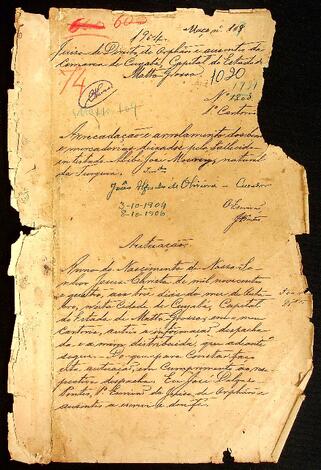 600 60
Maço nº 169
1904.
Juizo de Direito de Orphãos e ausentes da
Comarca de Cuyabá, Capital do Estado de
Matto-Grosso
1020
74
Nº 1205
1º Cartorio
Arrecadação e arrolamento dos bens
e mercadorias deixados pelo fallecido
intestado José natural
da
João Alfredo de Oliveira - Curador
3-10-1904
8-10-1906
O Escrivão
Autuação
Anno do Nascimento de Nosso Se-
nhor Jesus Christo de mil novecentos
e quatro, aos tres dias do mez de Outu-
bro, nesta Cidade de Cuyabá, Capital
do Estado de Matto Grosso, em o meu
Cartorio, autuo a informação despacha-
da e a mim distribuida que adiante
segue. Do que para constar faço
esta autuação, em cumprimento ao res-
pectivo despacho. Eu José
Pontes, 1º Escrivão do Officio de Orphãos e
ausentes a escrevi e dou fé.